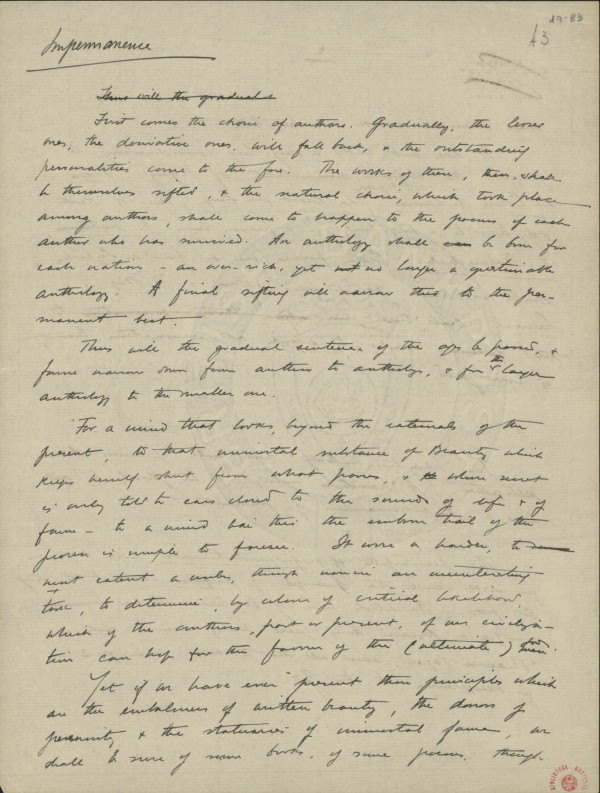 19-83
A3
Impermanence
Thus will the gradual s
First comes the choice of authors. Gradually, the lesser
ones, the derivative ones, will fall back, & the outstanding
personalities come to the fore. The works of these, then, shall
be themselves sifted, & the natural choice, which took place
among authors, shall come to happen to the poems of each
author who has survived. An anthology shall be born for
each nation – an over-rich, yet not no longer a questionable
anthology. A final sifting will narrow this to the per-
manent best.
Thus will the gradual sentence of the ages be passed, &
fame narrow down from author to anthology, & from the larger
anthology to the smaller one.
For a mind that looks, beyond the externals of the
present, to that immortal substance of Beauty which
keeps herself shut from what passes, & whose secret
is only told to ears closed to the sounds of life & of
fame – to a mind like this the unborn trail of the
process is simple to foresee. It were a harder, to
extent a, though an uninteresting
task, to determine, by of critical likelihood,
which of the authors, past or present, of our civiliza-
tion can hope for the favour of this (ultimate)
Yet if we have ever present these principles which
are the embalmers of written beauty, the donors of
& the statuaries of immortal fame, we
shall be sure of some books, of some poems, though